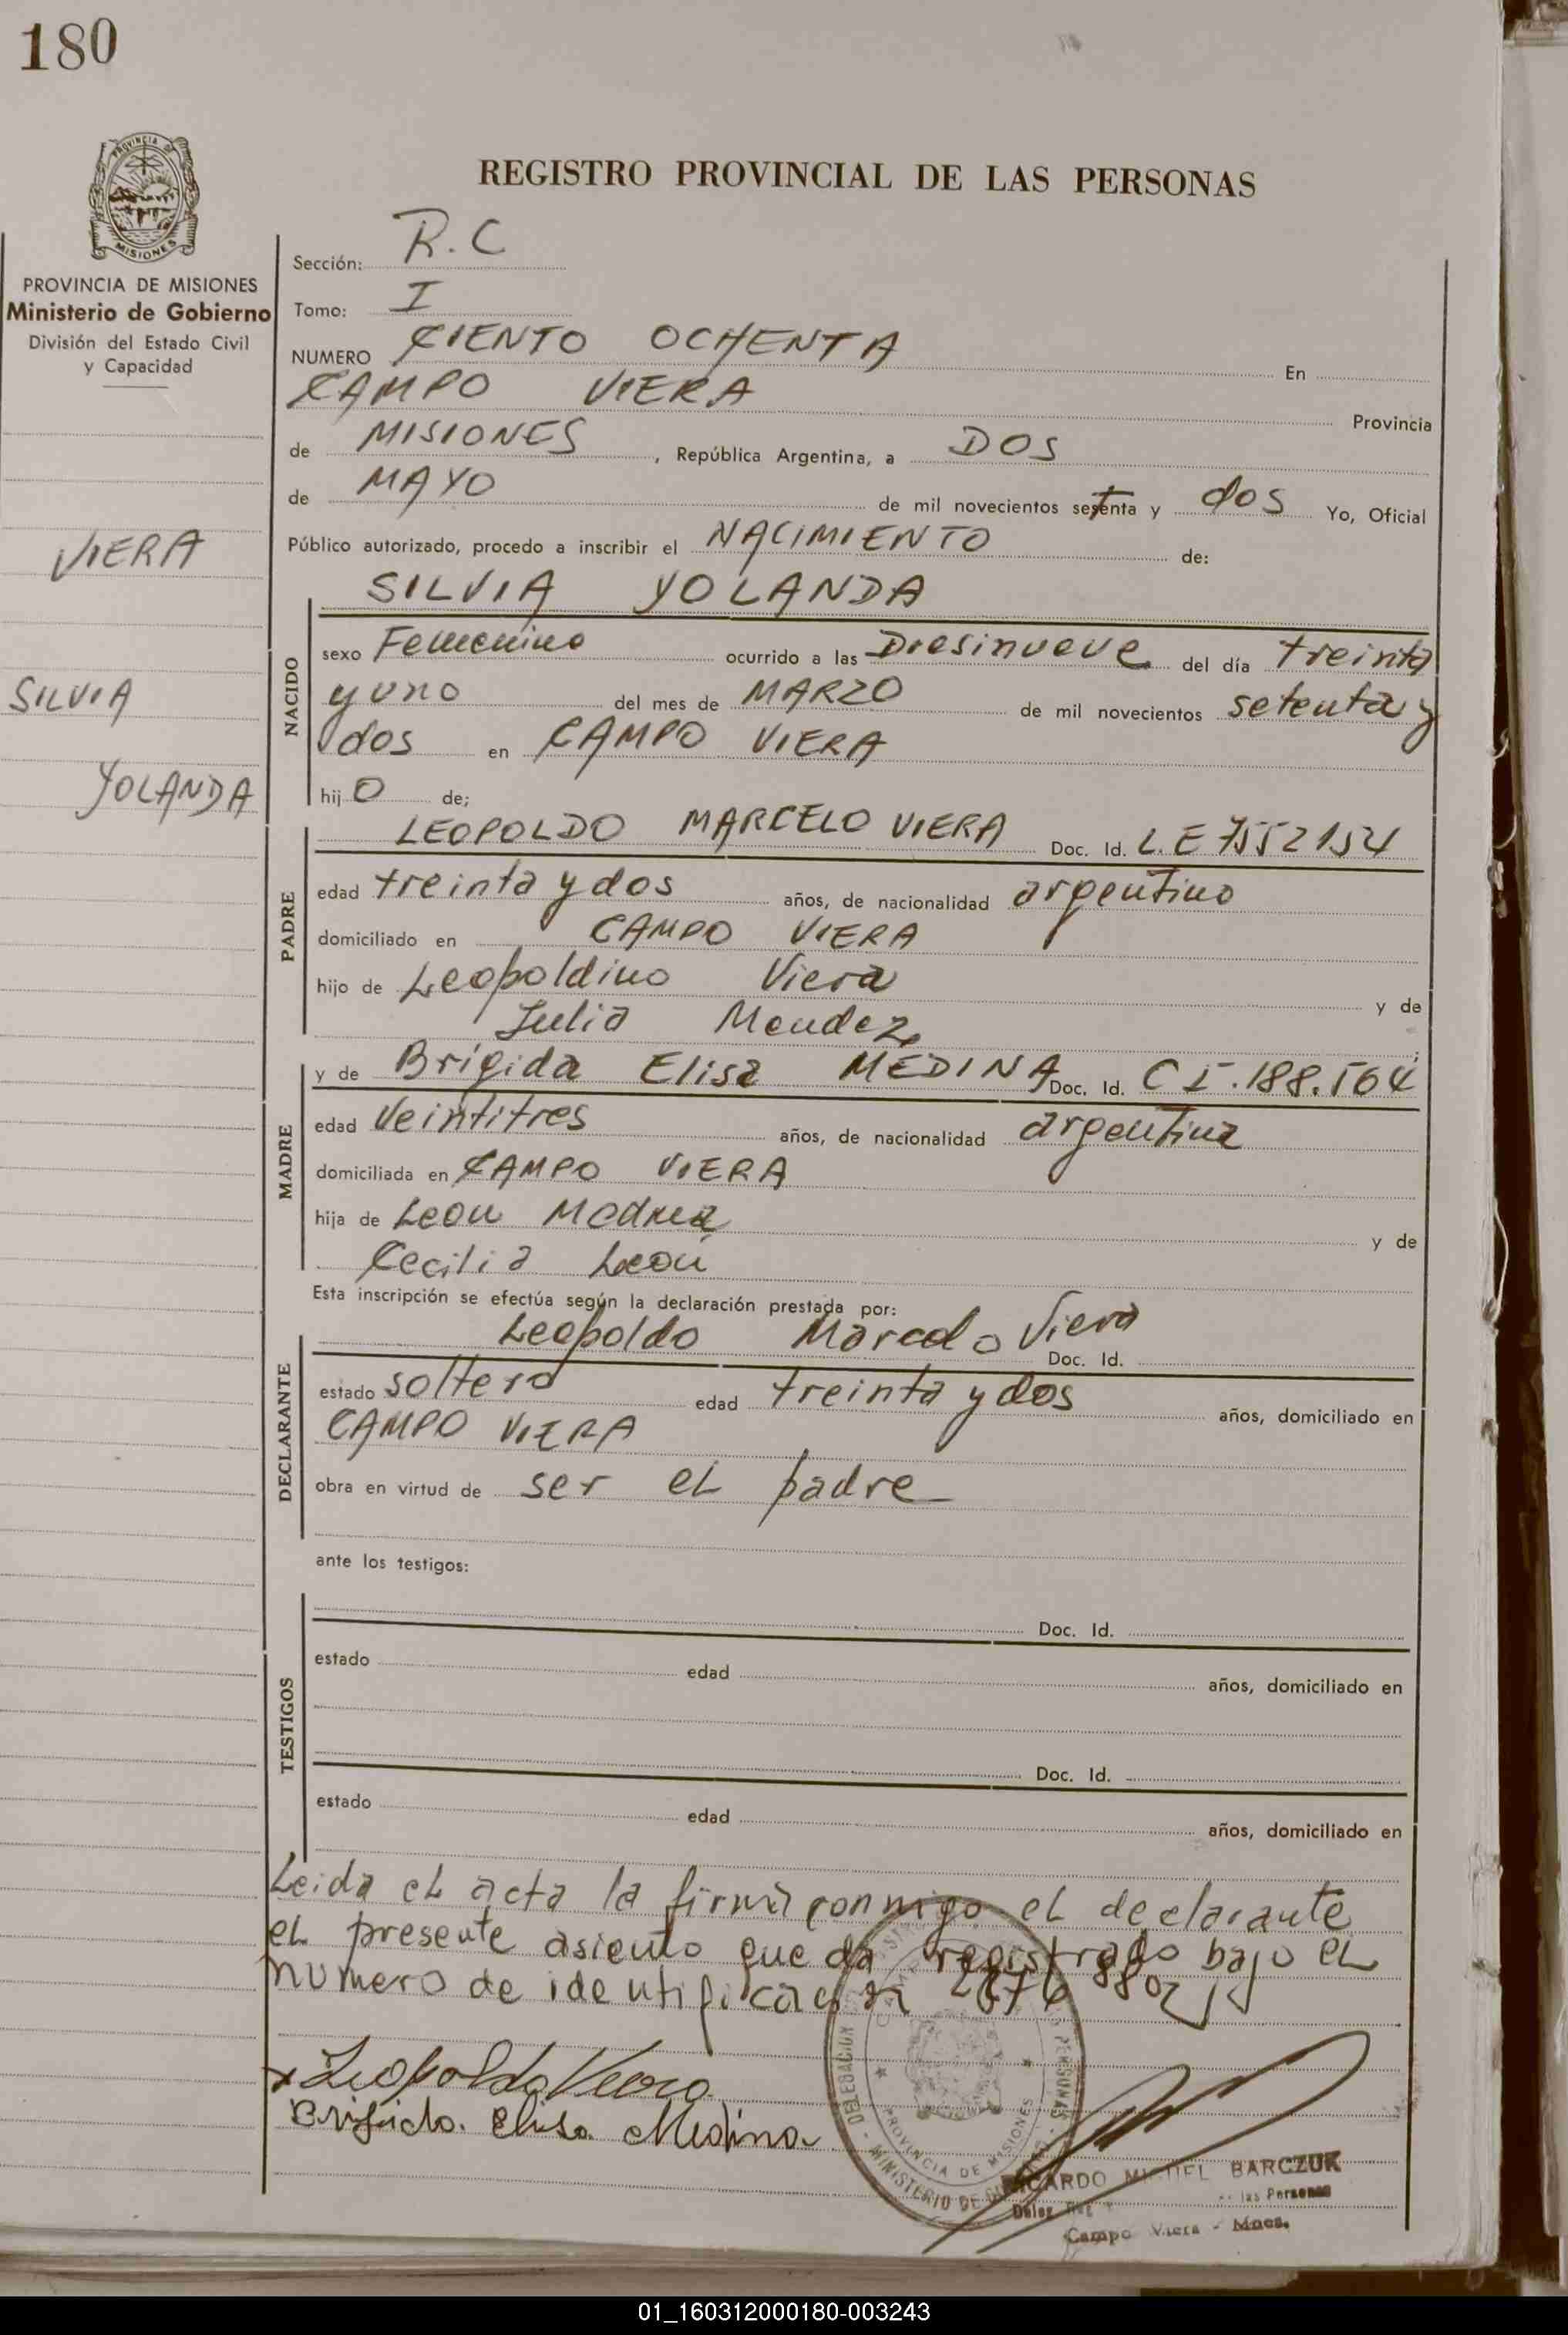 180
PROVINCIA DE
MISIONES
REGISTRO PROVINCIAL DE LAS PERSONAS
PROVINCIA DE MISIONES
Ministerio de Gobierno
División del Estado Civil
y Capacidad
VIERA
SILVIA
YOLANDA
Sección: R.C
Tomo: I
NUMERO CIENTO OCHENTA En
CAMPO VIERA Provincia
de MISIONES, República Argentina, a DOS
de MAYO de mil novecientos setenta y dos Yo, Oficial
Público autorizado, procedo a inscribir el NACIMIENTO de:
SILVIA YOLANDA
NACIDO
sexo Femenino ocurrido a las Diesinueve del día treinta
y uno del mes de MARZO de mil novecientos setenta y
dos en CAMPO VIERA
hijO de;
PADRE
LEOPOLDO MARCELO VIERA Doc. Id. L.E 7552154
edad treinta y dos años, de nacionalidad argentino
domiciliado en CAMPO VIERA
hijo de Leopoldino Viera y de
Julia Mendez;
MADRE
y de Brígida Elisa MEDINA Doc. Id. C I.188.564
edad veintitres años, de nacionalidad argentina
domiciliada en CAMPO VIERA
hija de Leon Medina y de
Cecilia Leon
Esta inscripción se efectúa según la declaración prestada por:
DECLARANTE
Leopoldo Marcelo Viera Doc. Id.
estado soltero edad treinta y dos años, domiciliado en
CAMPO VIERA
obra en virtud de ser eL padre
ante los testigos:
TESTIGOS
Doc. Id.
estado edad años, domiciliado en
Doc. Id.
estado edad años, domiciliado en
Leida eL acta la firma conmigo eL declarante
eL presente asiento queda registrado bajo eL
numero de identificación 8802
Leopoldo Viera
Brigida Elisa Medina
DELEGACION PERSONAS
PROVINCIA DE MISIONES
MINISTERIO DE
RICARDO MIGUEL BARCZUK
Deleg. las Personas
Campo Viera - Mnes.
01_160312000180-003243